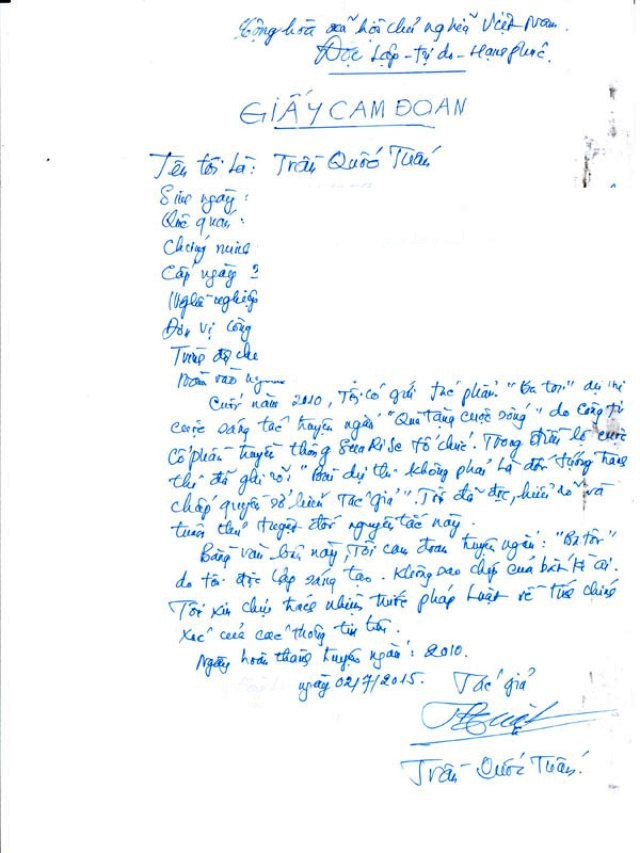 Cộng hòa xã hội chủ nghĩa Việt Nam
Độc Lập - Tự do - Hạnh phúc
GIẤY CAM ĐOAN
Tên tôi là: Trần Quốc Tuấn
Sinh ngày:
Quê quán:
Chứng minh
Cấp ngày
Nghề nghiệp
Đơn vị công
Trình độ
Cuối năm 2010, Tôi có gửi tác phẩm "Ba tôi" dự thi
cuộc sáng tác truyện ngắn "Quà tặng cuộc sống" do công ty
cổ phần truyền thông SunRise tổ chức. Trong điều lệ cuộc
thi đã ghi rõ: "Bài dự thi không phải là đối tượng tranh
chấp quyền sở hữu tác giả". Tôi đã đọc, hiểu rõ và
tuân thủ tuyệt đối nguyên tắc này.
Bằng văn bản này, Tôi cam đoan truyện ngắn: "Ba tôi"
do tôi độc lập sáng tạo. Không sao chép của bất kì ai.
Tôi xin chịu trách nhiệm trước pháp luật về tính chính
xác của các thông tin trên.
Ngày hoàn thành truyện ngắn: 2010.
ngày 02/7/2015. Tác giả
Trần Quốc Tuấn